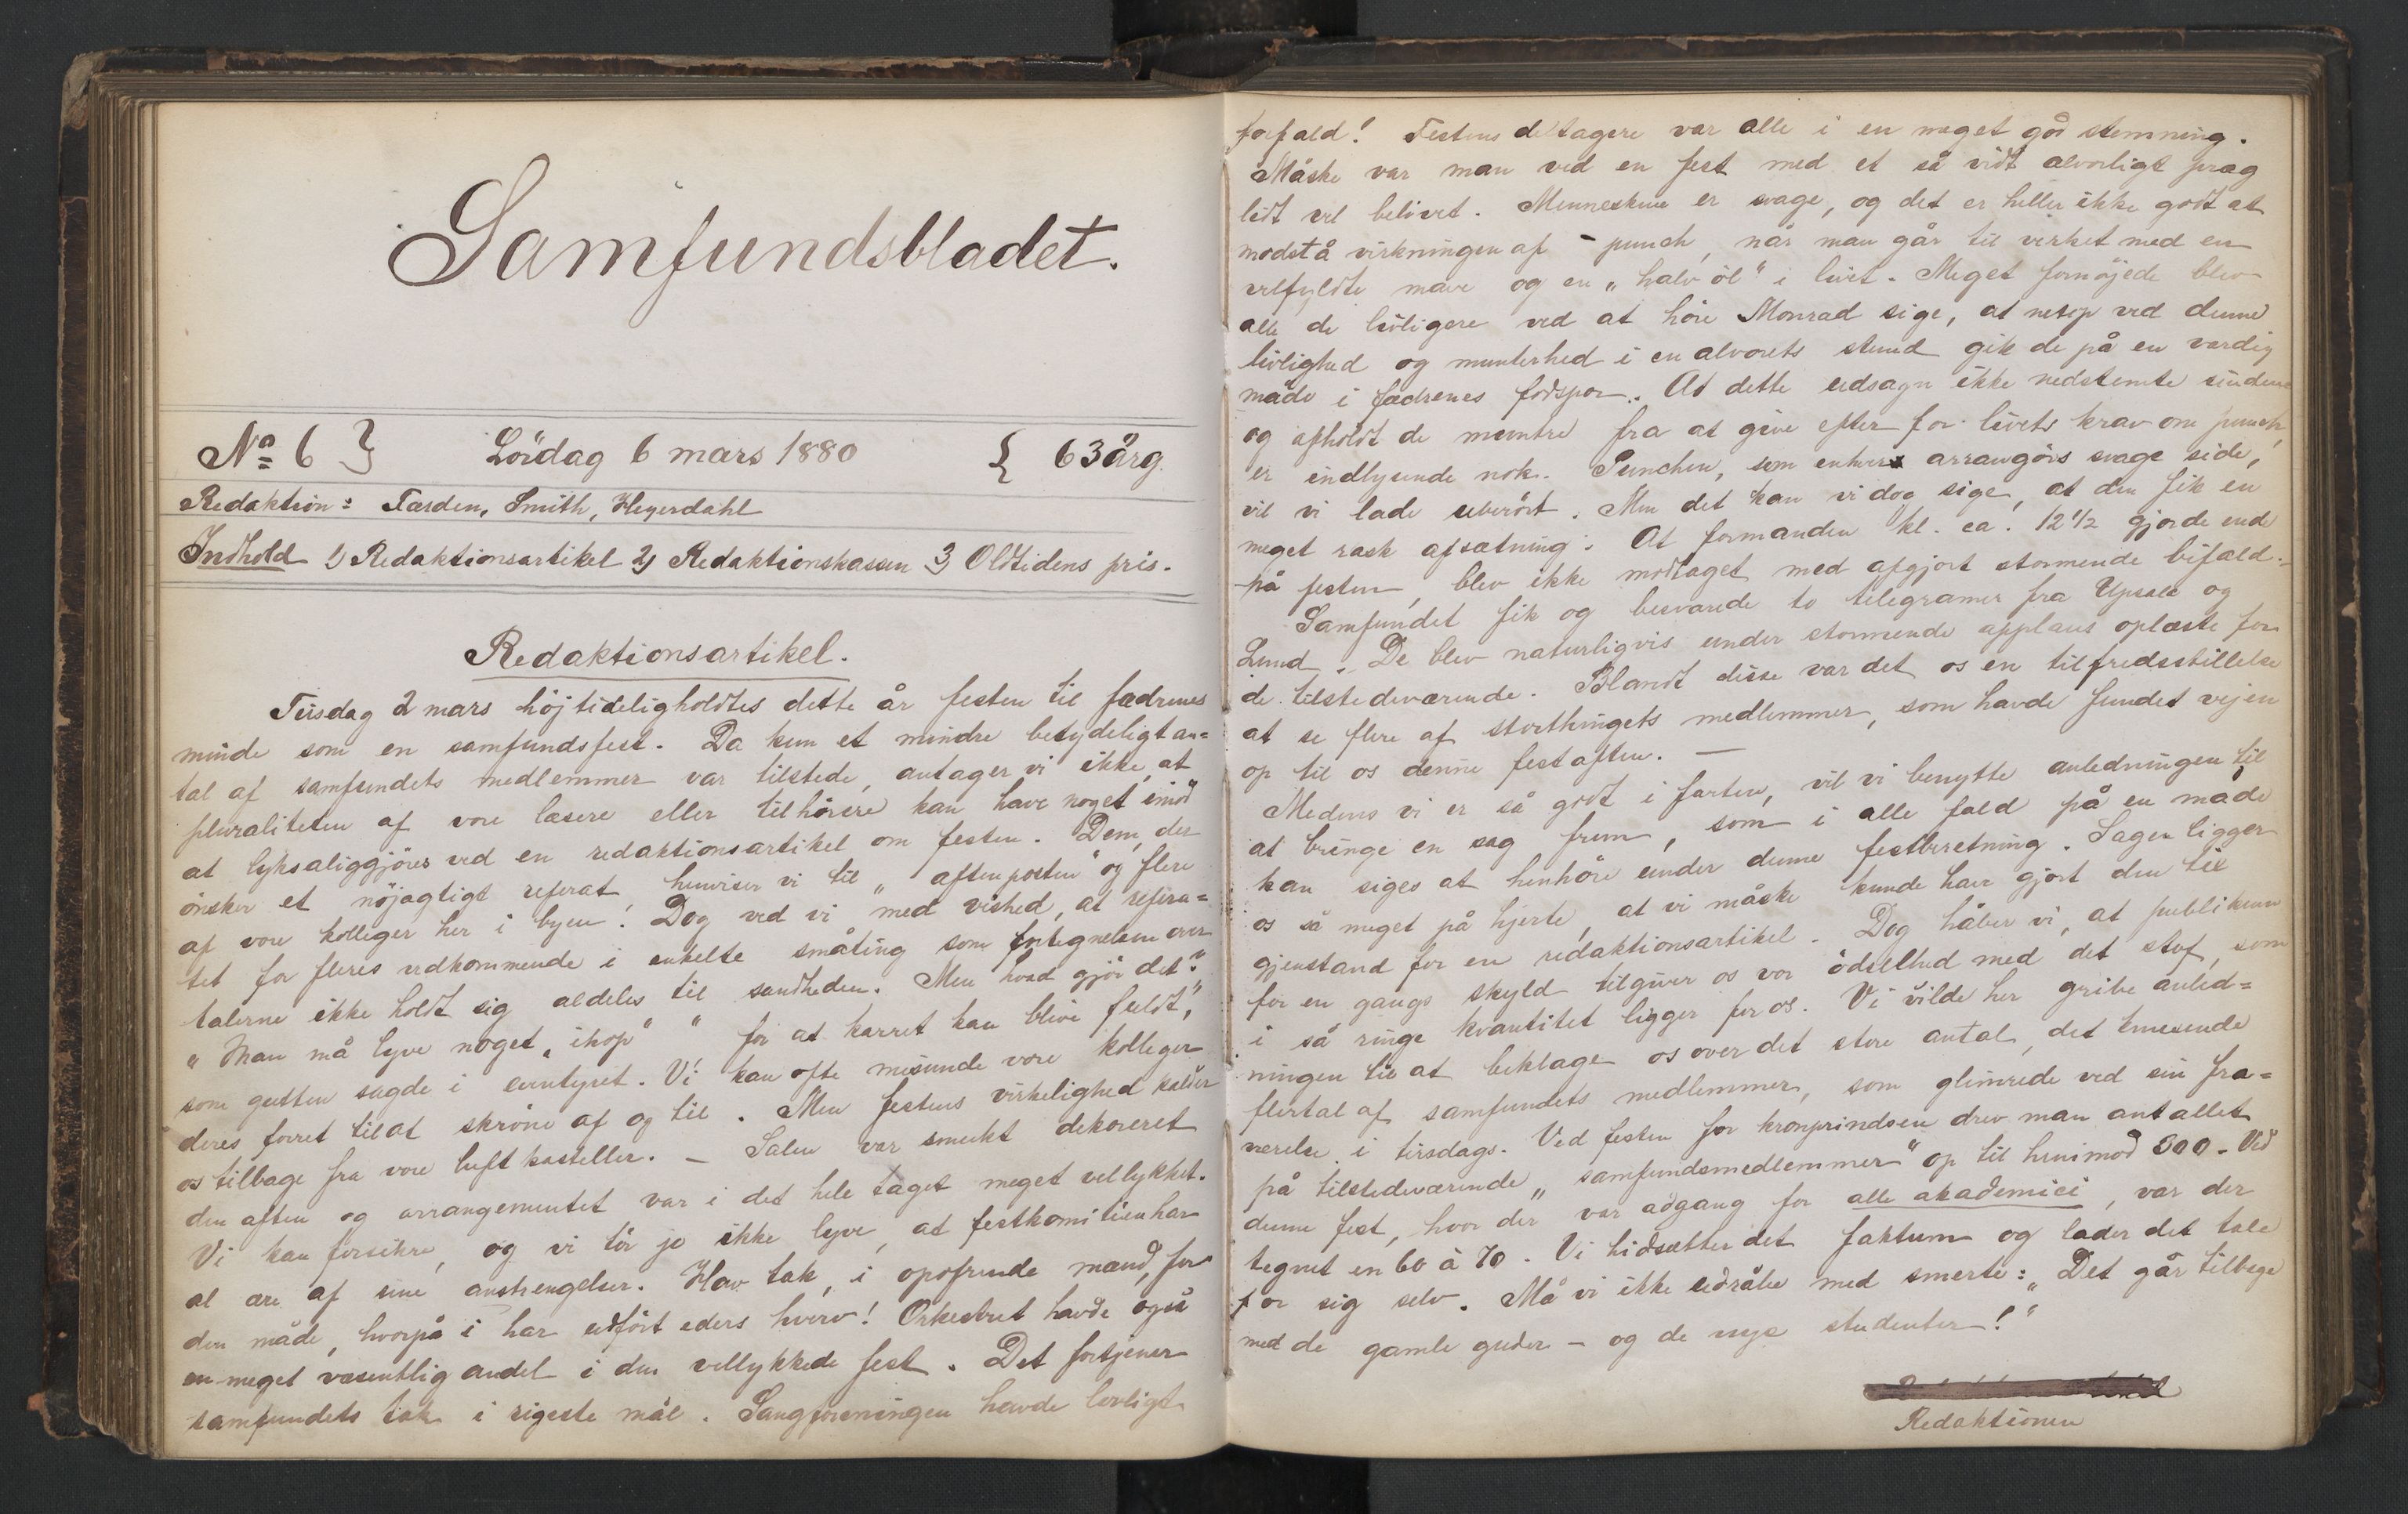 Samfundsbladet.
No 6 } Lördag 6 mars 1880 { 63 årg.
Redaktion: Færden, Smith, Heyerdahl
Indhold 1) Redaktionsartikel 2) Redaktionskassen 3) Oldtidens pris.
Redaktionsartikel.
Tirsdag 2 mars höjtideligholdtes dette år festen til fædrenes
minde som en samfundsfest. Da kun et mindre betydeligt an=
tal af samfundets medlemmer var tilstede, antager vi ikke, at
pluraliteten af vore læsere eller tilhörere kan have noget imod
at lyksaliggjöres ved en redaktionsartikel om festen. Dem, der
önsker et nöjagtigt referat, henviser vi til „aftenposten" og flere
af vore kolleger her i byen! Dog ved vi med vished, at refera=
tet for fleres vedkommende i enkelte småting som fortegnelsen over
talerne ikke holdt sig aldeles til sandheden. Men hvad gjör det?
„Man må lyve noget „ihop" „for at karret kan blive fuldt",
som gutten sagde i eventyret. Vi kan ofte misunde vore kolleger
deres forret til at skröne af og til. Men festens virkelighed kalder
os tilbage fra vore luftkasteller. – Salen var smukt dekoreret
den aften og arrangementet var i det hele taget meget vellykket.
Vi kan forsikre, og vi tör jo ikke lyve, at festkomitien har
al ære af sine anstrengelser. Hav tak, i opofrende mænd, for
den måde, hvorpå i har udfört eders hverv! Orkestret havde også
en meget væsentlig andel i den vellykkede fest. Det fortjener
samfundets tak i rigeste mål. Sangforeningen havde lovligt
forfald! Festens deltagere var alle i en meget god stemning.
Måske var man ved en fest med et så vidt alvorligt præg
lidt vel belivet. Menneskene er svage, og det er heller ikke godt at
modstå virkningen af - punch, når man går til virket med en
velfyldte mave og en „halv öl" i livet. Meget fornöjede blev
alle de livligere ved at höre Monrad sige, at netop ved denne
livlighed og munterhed i en alvorets stund gik de på en værdig
måde i fædrenes fodspor. At dette udsagn ikke nedstemte sindene
og afholdt de muntre fra at give efter for livets krav om punch,
er indlysende nok. Punchen, som enhver arrangörs svage side,
vil vi lade uberört. Men det kan vi dog sige, at den fik en
meget rask afsætning. At formanden kl. ca. 12½ gjorde ende
på festen, blev ikke modtaget med afgjort stormende bifald.
Samfundet fik og besvarede to telegramer fra Upsala og
Lund. De blev naturligvis under stormende applaus oplæste for
de tilstedeværende. Blandt disse var det os en tilfredsstillelse
at se flere af storthingets medlemmer, som havde fundet vejen
op til os denne festaften. —
Medens vi er så godt i farten, vil vi benytte anledningen til
at bringe en sag frem, som i alle fald på en måde
kan siges at henhöre under denne festberetning. Sagen ligger
os så meget på hjerte, at vi måske kunde have gjort den til
gjenstand for en redaktionsartikel. Dog håber vi, at publikum
for en gangs skyld tilgiver os vor ödselhed med det stof, som
i så ringe kvantitet ligger for os. Vi vilde her gribe anled=
ningen til at beklage os over det store antal, det knusende
flertal af samfundets medlemmer, som glimrede ved sin fra=
værelse i tirsdags. Ved festen for kronprindsen drev man antallet
på tilstedeværende „samfundsmedlemmer" op til henimod 300. Ved
denne fest, hvor der var adgang for alle akademici, var der
tegnet en 60 à 70. Vi hidsætter det faktum og lader det tale
for sig selv. Må vi ikke udråbe med smerte: „Det går tilbage
med de gamle guder – og de nye studenter!"
Redaktionen